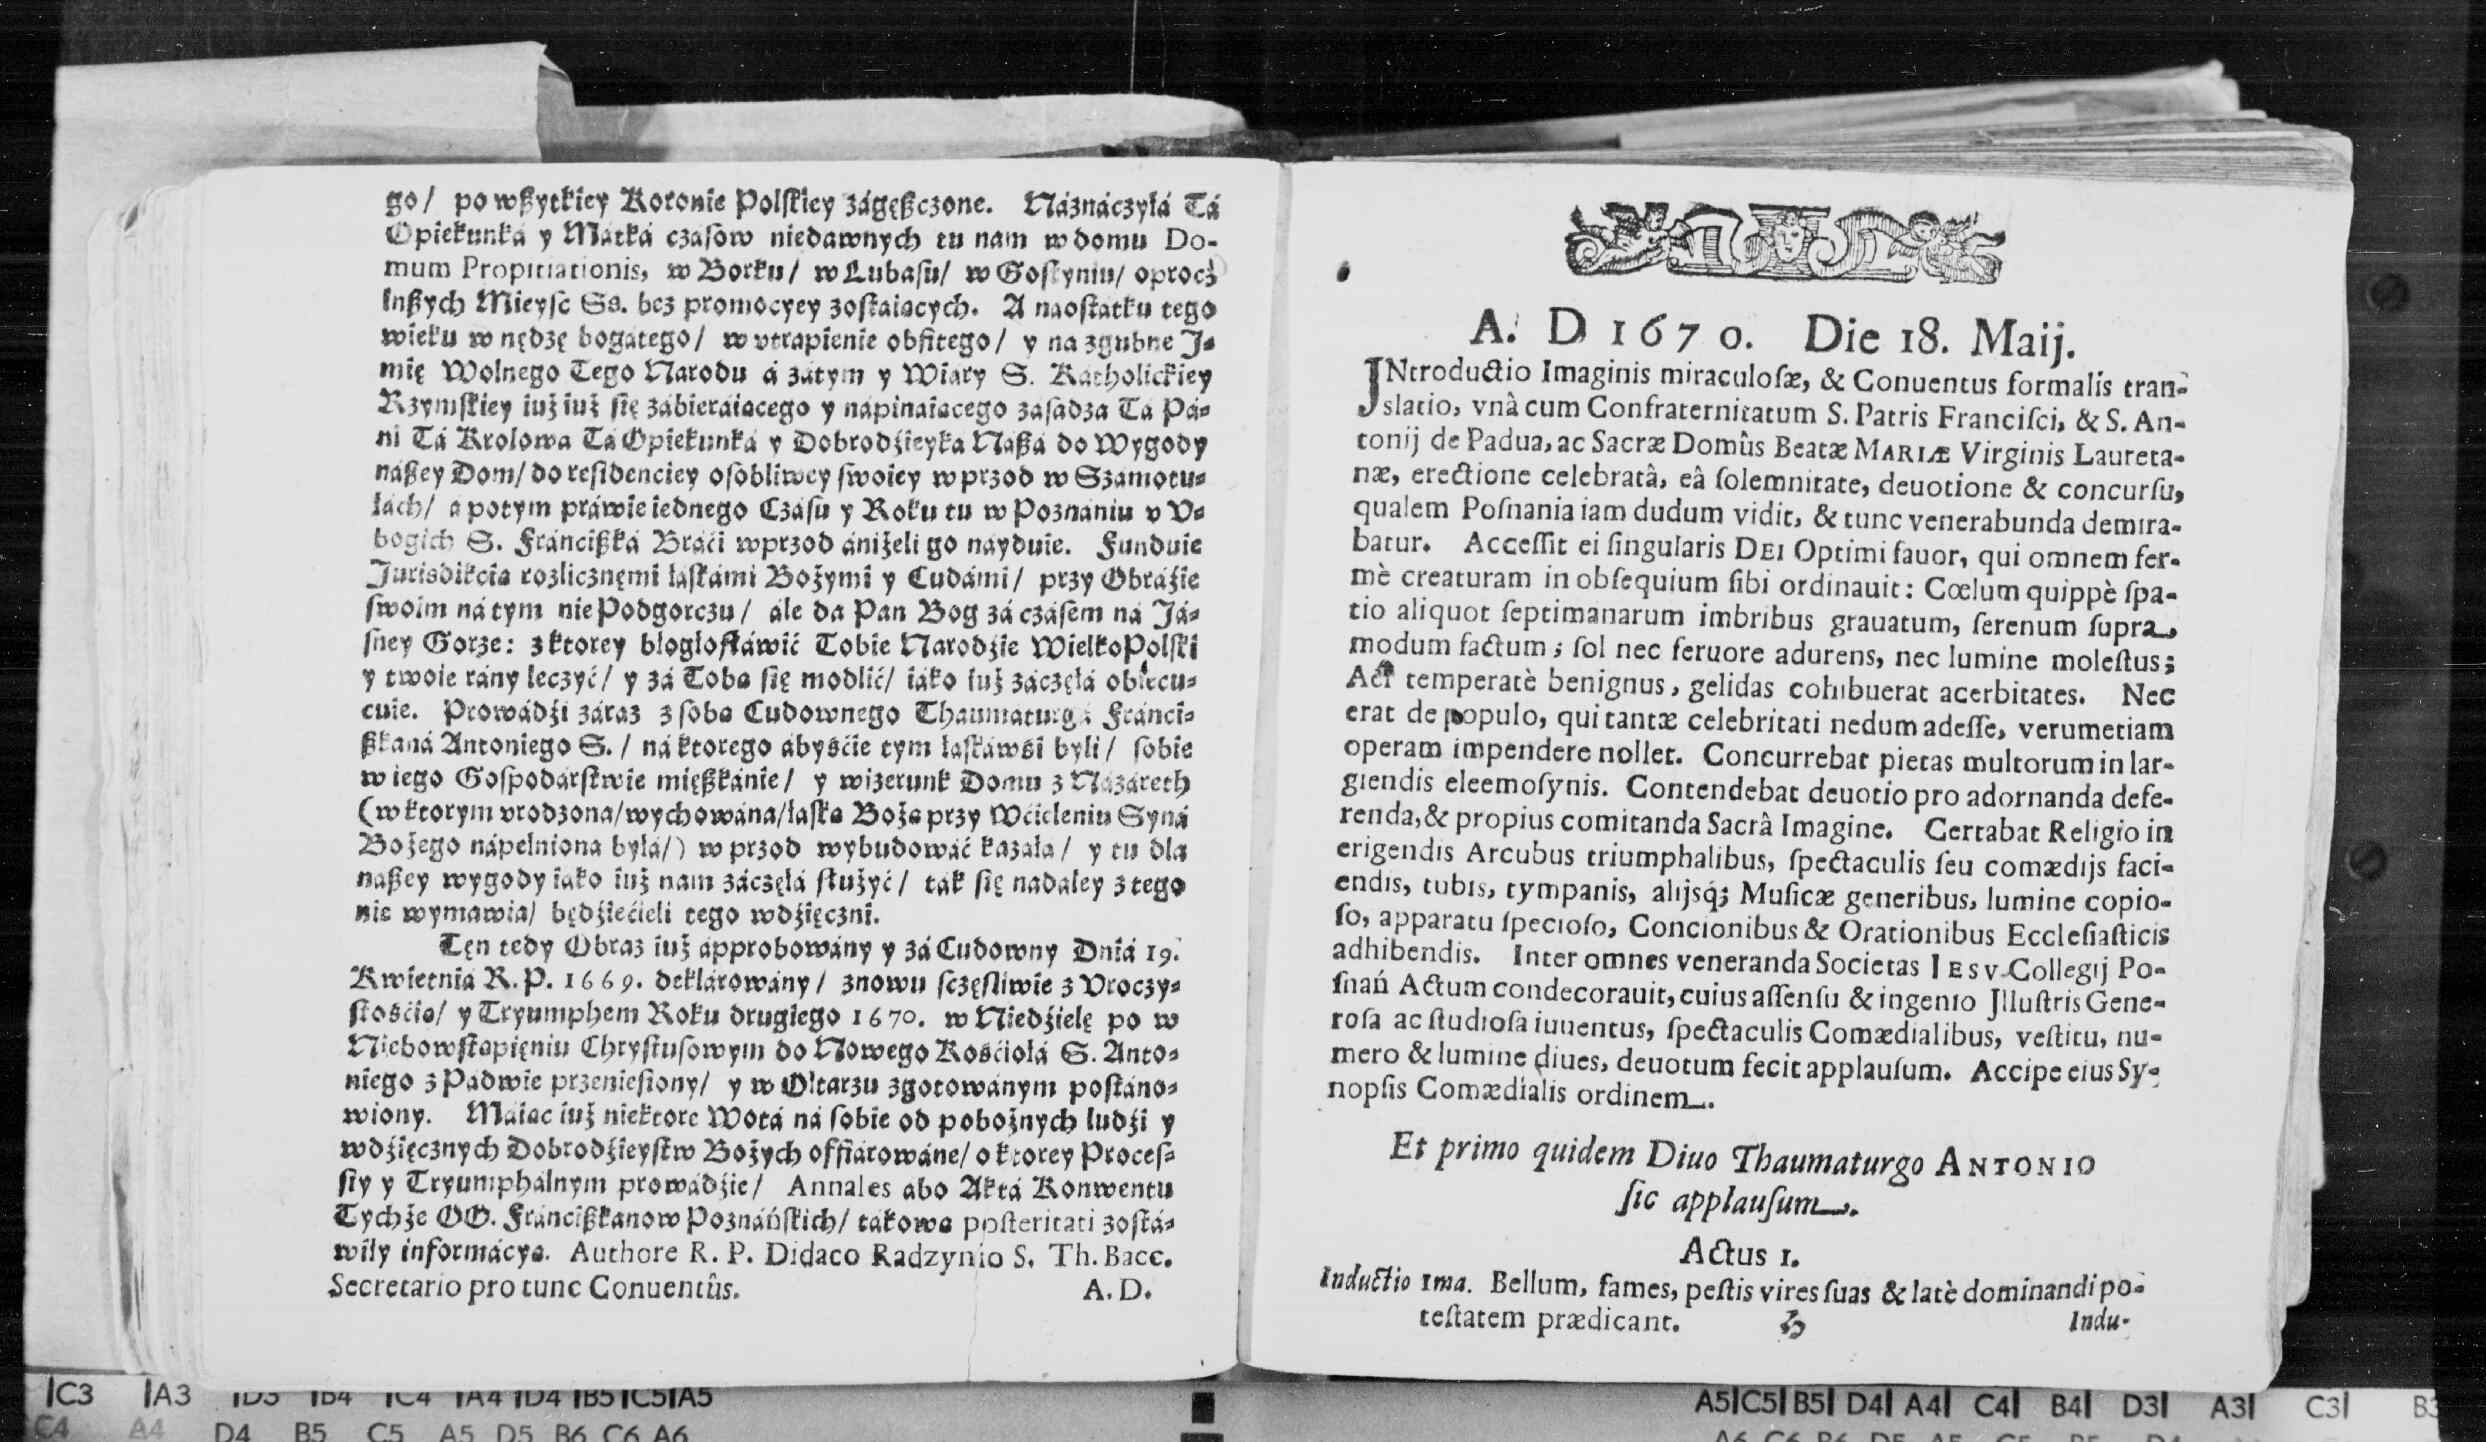 go/ po wßytkiey Koronie Polſkiey zágęßczone. Náznáczyłá Tá
Opiekunká y Mátká czaſow niedawnych tu nam w domu Do-
mum Propitiationis, w Borku/ w Lubaſu/ w Goſtyniu/ oprocż
Inßych Mieyſc Ss. bez promocyey zoſtaiących. A naoſtátku tego
wieku w nędzę bogátego/ w vtrapienie obfitego/ y na zgubne J-
mię Wolnego Tego Narodu á zátym y Wiáry S. Kátholickiey
Rzymſkiey iuż iuż ſię zábieráiącego y nápináiącego záſadza Tá Pá-
ni Tá Krolowa Tá Opiekunká y Dobrodźieyka Náßá do Wygody
náßey Dom/ do reſidenciey oſobliwey ſwoiey w przod w Számotu-
łách/ á potym práwie iednego Czáſu y Roku tu w Poznániu v V-
bogich S. Fránćißká Bráći wprzod ániżeli go náyduie. Funduie
Jurisdikcią rozlicznęmi łáſkámi Bożymi y Cudámi/ przy Obráźie
ſwoim ná tym nie Podgorczu/ ále da Pan Bog zá czáſem ná Já-
ſney Gorze: z ktorey błogłoſłáwić Tobie Narodźie WielkoPolſki
y twoie rány leczyć/ y zá Tobą ſię modlić/ iáko iuż záczęłá obiecu-
cuie. Prowádźi záraz z ſobą Cudownego Thaumaturgá Fránci-
ßkaná Antoniego S. / ná ktorego ábyśćie tym łáſkáwśi byli/ ſobie
w iego Goſpodárſtwie mięßkánie/ y wizerunk Domu z Názáreth
(w ktorym vrodzona/wychowána/łáſką Bożą przy Wćieleniu Syná
Bożego nápełniona byłá/) w przod wybudowáć kazáła/ y tu dla
naßey wygody iáko iuż nam záczęłá ſłużyć/ ták ſię nadaley z tego
nie wymawia/ będźiećieli tego wdźięczni.
Tęn tedy Obraz iuż ápprobowány y zá Cudowny Dniá 19.
Kwietnia R. P. 1669. deklárowány/ znowu ſczęśliwie z Vroczy-
ſtośćią/ y Tryumphem Roku drugiego 1670. w Niedźielę po w
Niebowſtąpięniu Chryſtuſowym do Nowego Kośćiołá S. Anto-
niego z Padwie przenieſiony/ y w Ołtarzu zgotowánym poſtáno-
wiony. Máiąc iuż niektore Wotá ná ſobie od pobożnych ludźi y
wdźięcznych Dobrodźieyſtw Bożych offiárowáne/ o ktorey Proceſ-
ſiy y Tryumphálnym prowádźie/ Annales abo Aktá Konwentu
Tychże OO. Fránćißkanow Poznáńſkich/ tákową poſteritati zoſtá-
wiły informácyą. Authore R. P. Didaco Radzynio S. Th. Bacc.
Secretario pro tunc Conuentûs. A. D.
A. D 1670. Die 18. Maij.
JNtroductio Imaginis miraculoſæ, & Conuentus formalis tran-
slatio, vnâ cum Confraternitatum S. Patris Franciſci, & S. An-
tonij de Padua, ac Sacræ Domûs Beatæ MARIÆ Virginis Laureta-
næ, erectione celebratâ, eâ ſolemnitate, deuotione & concurſu,
qualem Poſnania iam dudum vidit, & tunc venerabunda demira-
batur. Acceſſit ei ſingularis DEI Optimi fauor, qui omnem fer-
mè creaturam in obſequium ſibi ordinauit: Cœlum quippè ſpa-
tio aliquot ſeptimanarum imbribus grauatum, ſerenum ſupra
modum factum; ſol nec feruore adurens, nec lumine moleſtus;
Aër temperatè benignus, gelidas cohibuerat acerbitates. Nec
erat de populo, qui tantæ celebritati nedum adeſſe, verumetiam
operam impendere nollet. Concurrebat pietas multorum in lar-
giendis eleemoſynis. Contendebat deuotio pro adornanda defe-
renda,& propius comitanda Sacrâ Imagine. Certabat Religio in
erigendis Arcubus triumphalibus, ſpectaculis ſeu comædijs faci-
endis, tubis, tympanis, alijsq́; Muſicæ generibus, lumine copio-
ſo, apparatu ſpecioſo, Concionibus & Orationibus Eccleſiaſticis
adhibendis. Inter omnes veneranda Societas IESV Collegij Po-
ſnań Actum condecorauit, cuius aſſenſu & ingenio Jlluſtris Gene-
roſa ac ſtudioſa iuuentus, ſpectaculis Comædialibus, veſtitu, nu-
mero & lumine diues, deuotum fecit applauſum. Accipe eius Sy-
nopſis Comædialis ordinem.
Et primo quidem Diuo Thaumaturgo ANTONIO
ſic applauſum.
Actus 1.
Inductio 1ma. Bellum, fames, peſtis vires ſuas & latè dominandi po-
teſtatem prædicant.
Indu-
C3 A3 D3 B4 C4 A4 D4 B5 C5 A5
C4 A4 D4 B5 C5 A5 D5 B6 C6 A6
A5 C5 B5 D4 A4 C4 B4 D3 A3 C3 B3